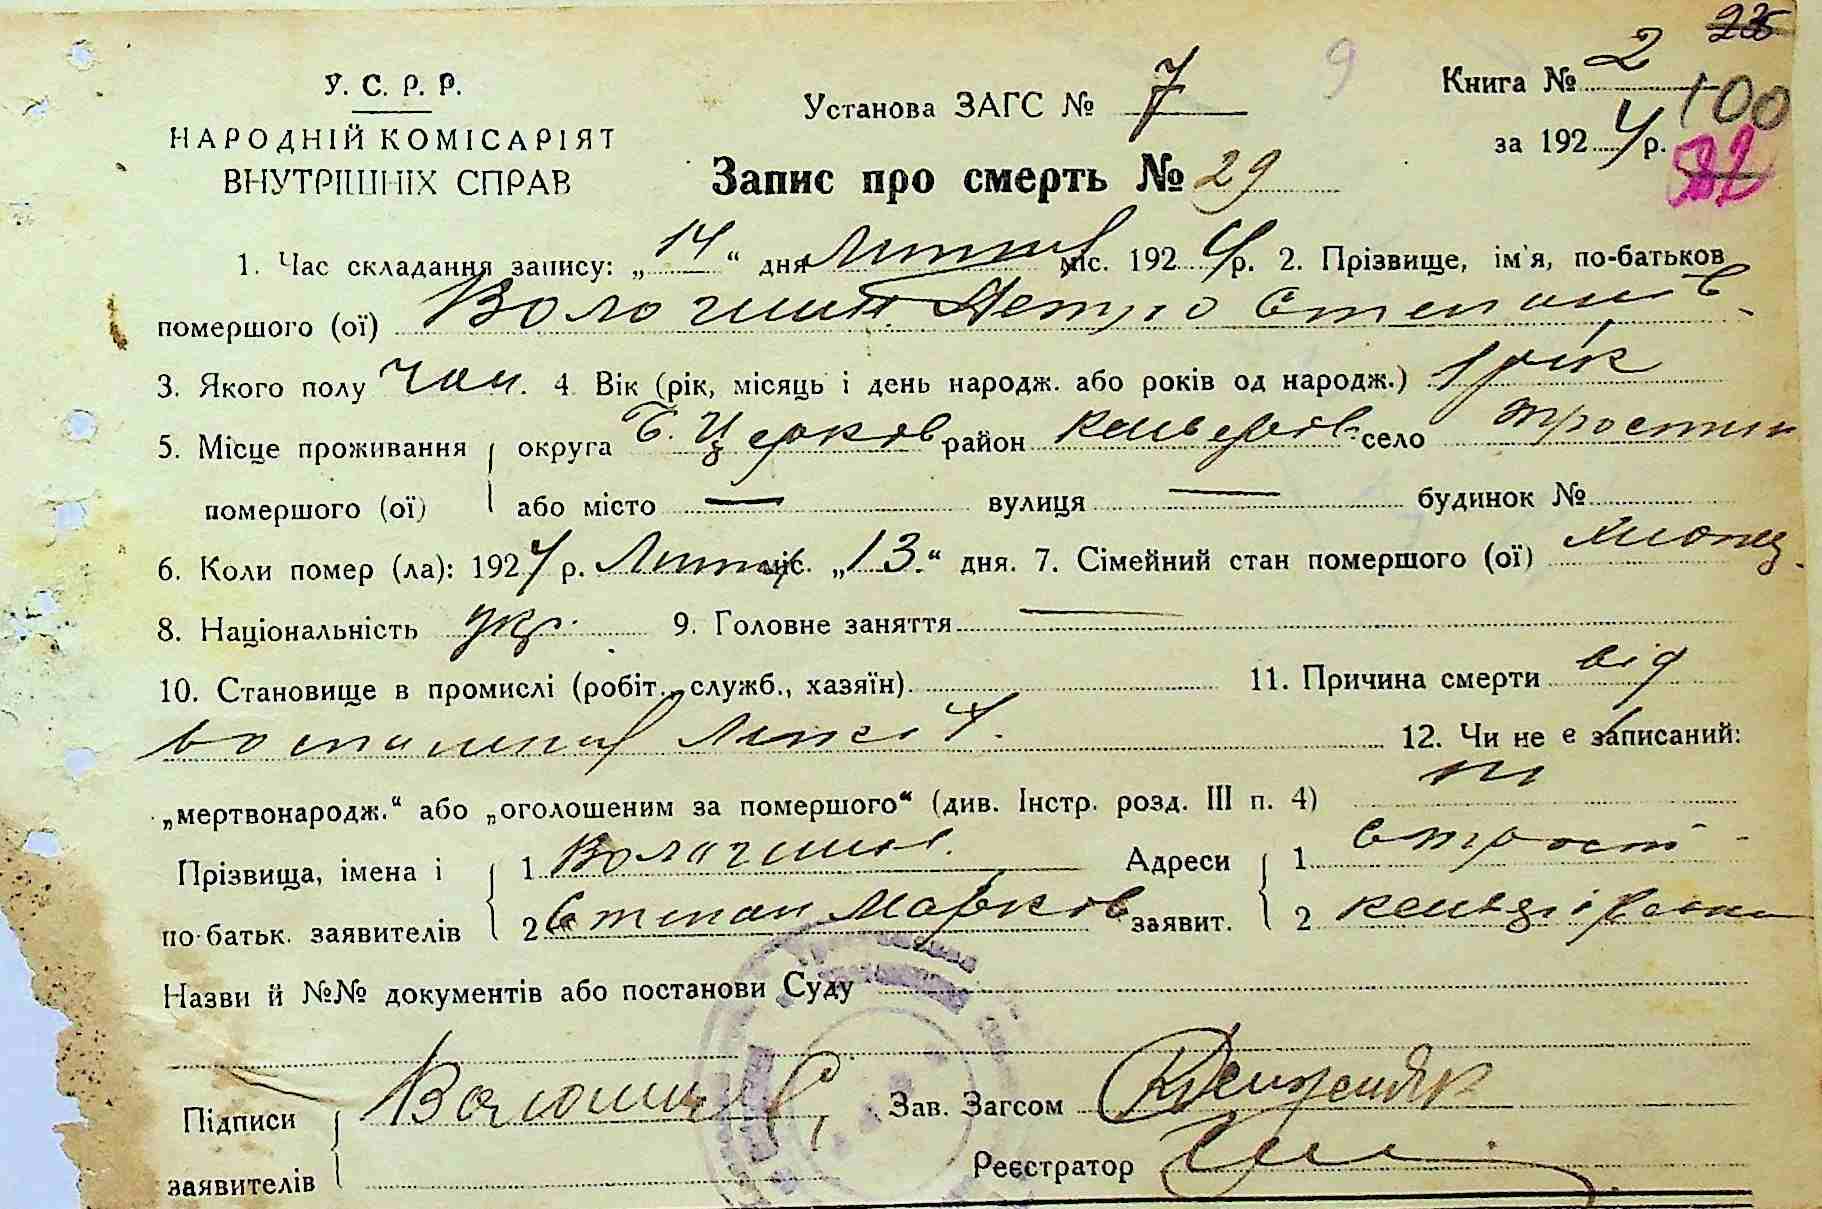 235
У. С. Р. Р.
НАРОДНІЙ КОМІСАРІЯТ
ВНУТРІШНІХ СПРАВ
Установа ЗАГС № 7
9
Книга № 2
100
за 1924 р.
Запис про смерть № 29
1. Час складання запису: „14“ дня Лютня міс. 1924 р. 2. Прізвище, ім'я, по-батьков
помершого (ої) Волошин Петро Степанів
3. Якого полу чол. 4. Вік (рік, місяць і день народж. або років од народж.) 1 рік
5. Місце проживання округа Б. Церков район село
помершого (ої) або місто — вулиця — будинок №
6. Коли помер (ла): 1924 р. міс. „13.“ дня. 7. Сімейний стан помершого (ої) хлопец
8. Національність укр. 9. Головне заняття —
10. Становище в промислі (робіт., служб., хазяїн). 11. Причина смерти від
12. Чи не є записаний:
„мертвонародж.“ або „оголошеним за помершого“ (див. Інстр. розд. III п. 4) ні
Прізвища, імена і 1 Адреси 1
по-батьк. заявителів 2 Степан Марков заявит. 2
Назви й №№ документів або постанови Суду
Підписи Волошин Зав. Загсом
заявителів Реєстратор